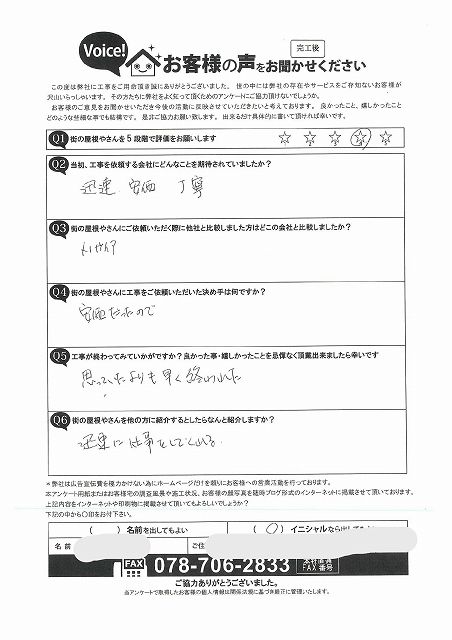 Voice!
お客様の声をお聞かせください
完工後
この度は弊社に工事をご用命頂き誠にありがとうございました。世の中には弊社の存在やサービスをご存知ないお客様が
沢山いらっしゃいます。その方たちに弊社をよく知って頂くためのアンケートにご協力頂けないでしょうか。
お客様のご意見をお聞かせいただき今後の活動に反映させていただきたいと考えております。良かったこと、嬉しかったこと
どのような些細な事でも結構です。是非ご協力お願いします。出来るだけ具体的に書いて頂ければ幸いです。
Q1 街の屋根やさんを5段階で評価をお願いします ☆ ☆ ☆ ☆ ☆
Q2 当初、工事を依頼する会社にどんなことを期待されていましたか?
迅速 安価 丁寧
Q3 街の屋根やさんにご依頼いただく際に他社と比較しました方はどこの会社と比較しましたか?
Q4 街の屋根やさんに工事をご依頼いただいた決め手は何ですか?
安価だったので
Q5 工事が終わってみていかがですか?良かった事・嬉しかったことを忌憚なく頂戴出来ましたら幸いです
思っていたよりも早く終わった
Q6 街の屋根やさんを他の方に紹介するとしたらなんと紹介しますか?
迅速に仕事をしてくれる。
*弊社は広告宣伝費を極力かけない為にホームページだけを頼りにお客様への営業活動を行っております。
本アンケート用紙またはお客様宅の調査風景や施工状況、お客様の顔写真を随時ブログ形式のインターネットに掲載させて頂いております。
上記内容をインターネットや印刷物に掲載させて頂いてもよろしいでしょうか?
下記の中から〇印をお付下さい。
( ) 名前を出してもよい ( 〇 ) イニシャルなら出しても
名前 ご住
FAX 078-706-2833 FAX番号
ご協力ありがとうございました。
当アンケートで取得したお客様の個人情報は関係法規に基づき厳正に管理いたします。